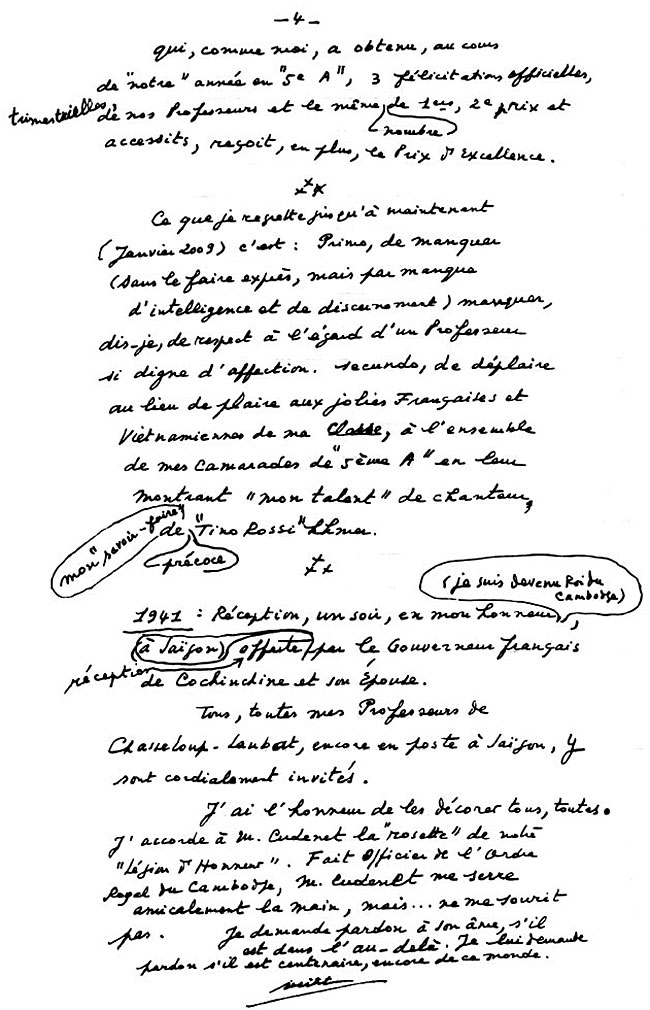 — 4 —
qui, comme moi, a obtenu, au cours
de "notre" année en "5e A", 3 félicitations officielles,
trimestrielles, de nos Professeurs et le même de 1ers, 2e prix et
nombre
accessits, reçoit, en plus, le Prix d'Excellence.
Ce que je regrette jusqu'à maintenant
(Janvier 2009) c'est : Primo, de manquer
(sans le faire exprès, mais par manque
d'intelligence et de discernement) manquer,
dis-je, de respect à l'égard d'un Professeur
si digne d'affection. secundo, de déplaire
au lieu de plaire aux jolies Françaises et
Vietnamiennes de ma Classe, à l'ensemble
de mes Camarades de "5ème A" en leur
montrant "mon talent" de chanteur,
mon "savoir-faire" de "Tino Rossi" khmer.
précoce
(je suis devenu Roi du
Cambodge)
1941 : Réception, un soir, en mon honneur,
(à Saïgon) offerte par le Gouverneur français
réception
de Cochinchine et son Épouse.
Tous, toutes mes Professeurs de
Chasseloup-Laubat, encore en poste à Saïgon, y
sont cordialement invités.
J'ai l'honneur de les décorer tous, toutes.
J'accorde à M. Cudenet la "rosette" de notre
"Légion d'Honneur". Fait Officier de l'Ordre
Royal du Cambodge, M. Cudenet me serre
amicalement la main, mais... ne me sourit
pas. Je demande pardon à son âme, s'il
est dans l'au-delà. Je lui demande
pardon s'il est centenaire, encore de ce monde.